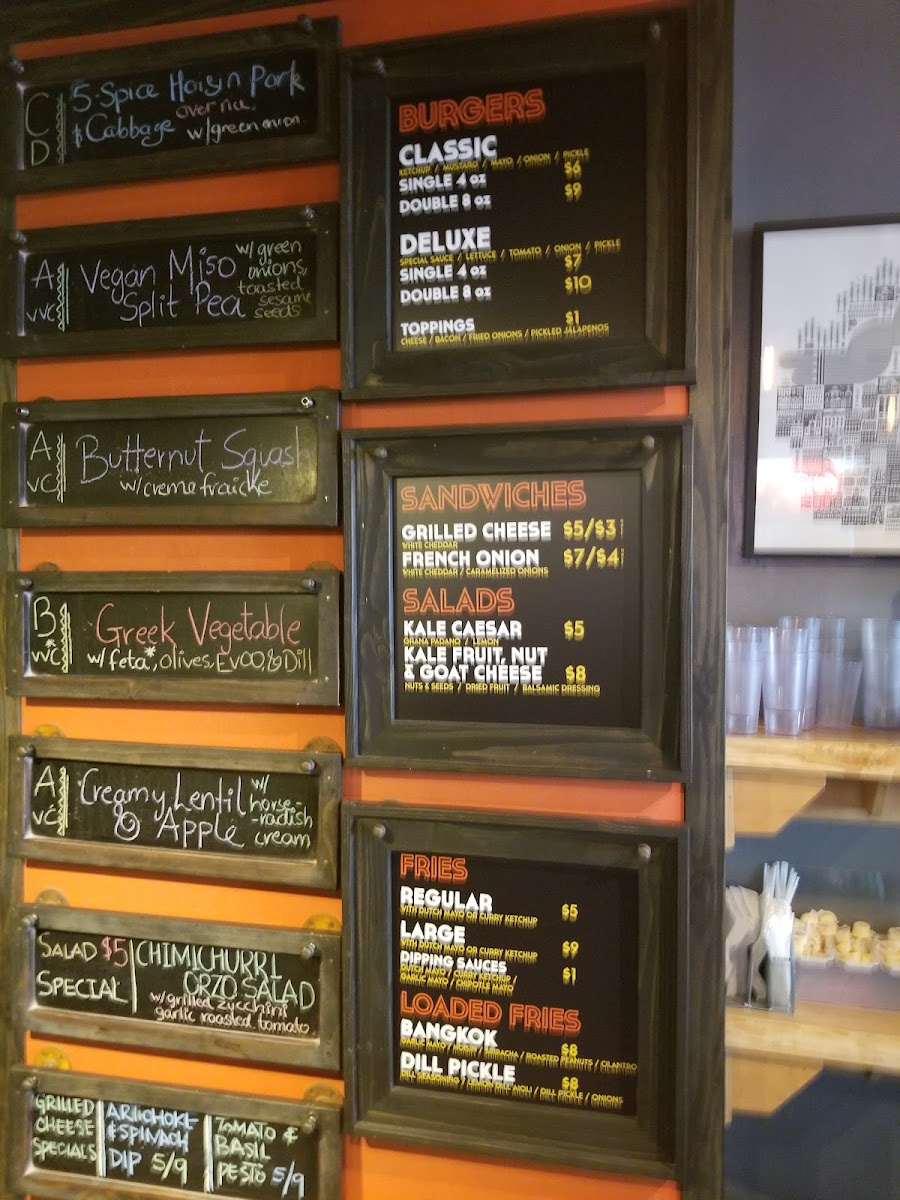 C D
5-Spice Hoisin Pork
& Cabbage over rice
w/green onion
A
VVC
Vegan Miso
Split Pea
w/green
onions,
toasted
sesame
seeds
A
VC
Butternut Squash
w/cremefraiche
B
VVC*
Greek Vegetable
w/feta*, olives, EVOO, & Dill
A
VC
Creamy Lentil
& Apple
w/
horse-
-radish
cream
SALAD $5
SPECIAL
CHIMICHURRI
ORZO SALAD
w/grilled zucchini
garlic roasted tomato
GRILLED
CHEESE
SPECIALS
ARTICHOKE
& SPINACH
DIP 5/9
TOMATO &
BASIL
PESTO 5/9
BURGERS
CLASSIC
KETCHUP / MUSTARD / MAYO / ONION / PICKLE
SINGLE 4 oz $6
DOUBLE 8 oz $9
DELUXE
SPECIAL SAUCE / LETTUCE / TOMATO / ONION / PICKLE
SINGLE 4 oz $7
DOUBLE 8 oz $10
TOPPINGS $1
CHEESE / BACON / FRIED ONIONS / PICKLED JALAPENOS
SANDWICHES
GRILLED CHEESE $5/$3
WHITE CHEDDAR
FRENCH ONION $7/$4
WHITE CHEDDAR / CARAMELIZED ONIONS
SALADS
KALE CAESAR $5
GRANA PADANO / LEMON
KALE FRUIT, NUT
& GOAT CHEESE $8
NUTS & SEEDS / DRIED FRUIT / BALSAMIC DRESSING
FRIES
REGULAR $5
WITH DUTCH MAYO OR CURRY KETCHUP
LARGE $9
WITH DUTCH MAYO OR CURRY KETCHUP
DIPPING SAUCES $1
DUTCH MAYO / CURRY KETCHUP /
GARLIC MAYO / CHIPOTLE MAYO
LOADED FRIES
BANGKOK $8
GARLIC MAYO / HOISIN / SRIRACHA / ROASTED PEANUTS / CILANTRO
DILL PICKLE $8
DILL SEASONING / LEMON DILL AIOLI / DILL PICKLE / ONIONS